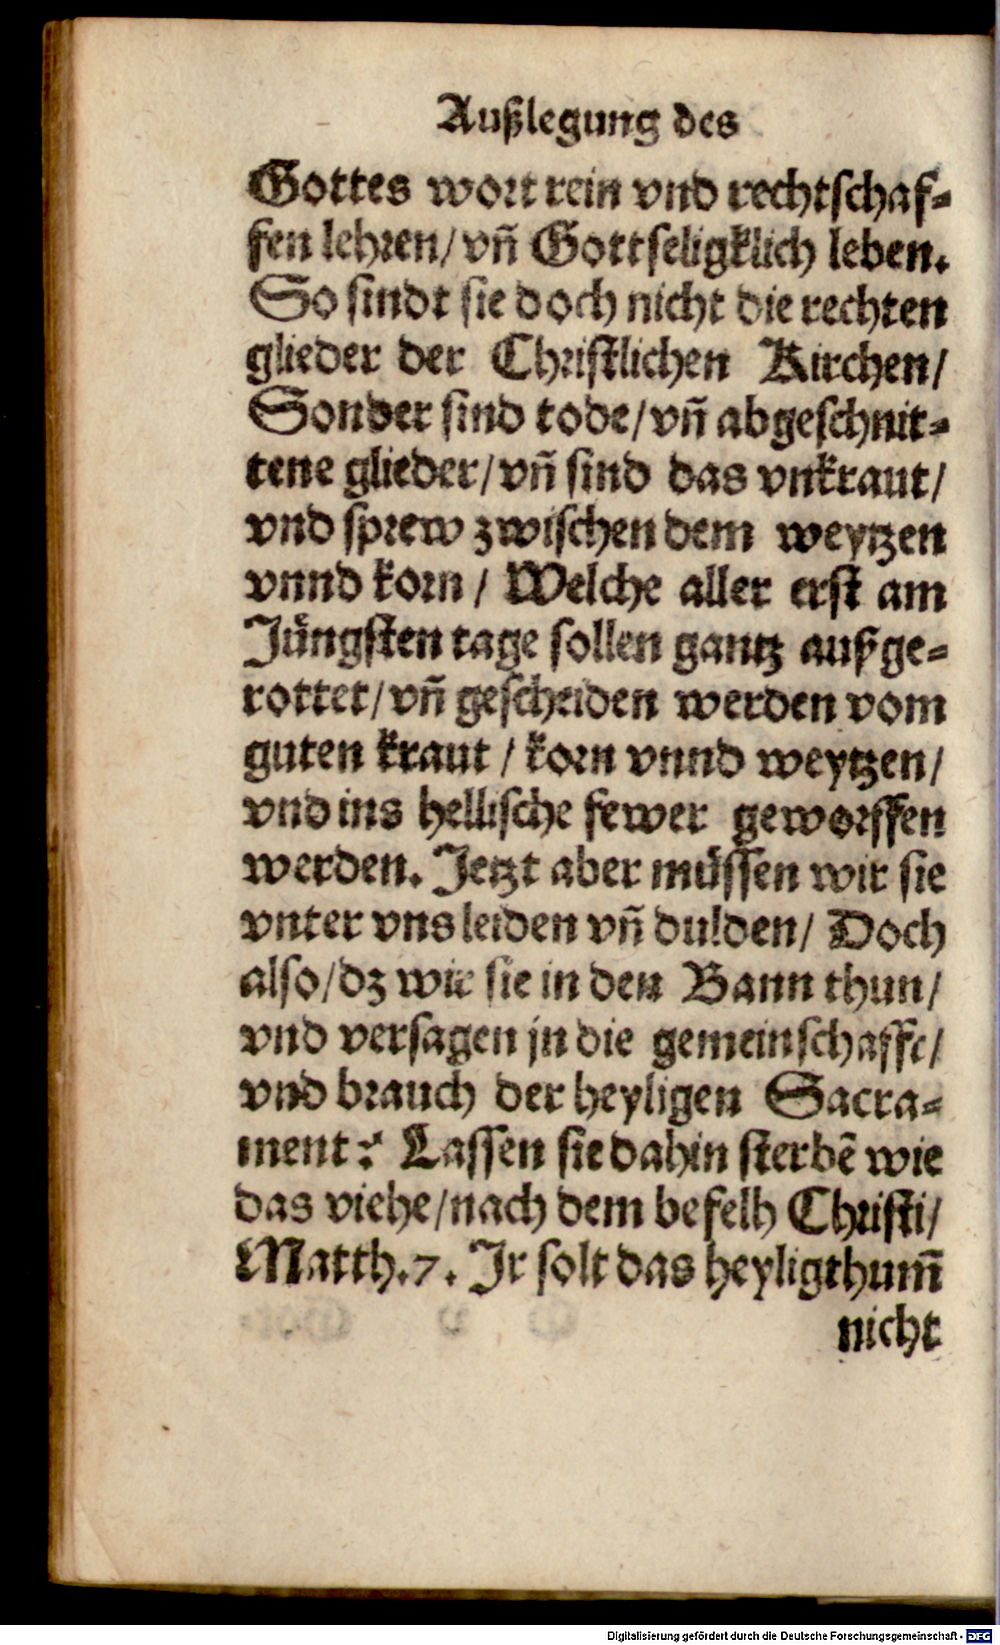 Außlegung des
Gottes wort rein vnd rechtschaf-
fen lehren/ vñ Gottseligklich leben.
So sindt sie doch nicht die rechten
glieder der Christlichen Kirchen/
Sonder sind tode/ vñ abgeschnit-
tene glieder/ vñ sind das vnkraut/
vnd sprew zwischen dem weytzen
vnnd korn / Welche aller erst am
Jüngsten tage sollen gantz außge-
rottet/ vñ gescheiden werden vom
guten kraut / korn vnnd weytzen/
vnd ins hellische fewer geworffen
werden. Jetzt aber müssen wir sie
vnter vns leiden vñ dulden/ Doch
also/ dz wir sie in den Bann thun/
vnd versagen jn die gemeinschafft/
vnd brauch der heyligen Sacra-
ment: Lassen sie dahin sterbẽ wie
das viehe/ nach dem befelh Christi/
Matth.7. Jr solt das heyligthum̃
nicht
Digitalisierung gefördert durch die Deutsche Forschungsgemeinschaft - DFG